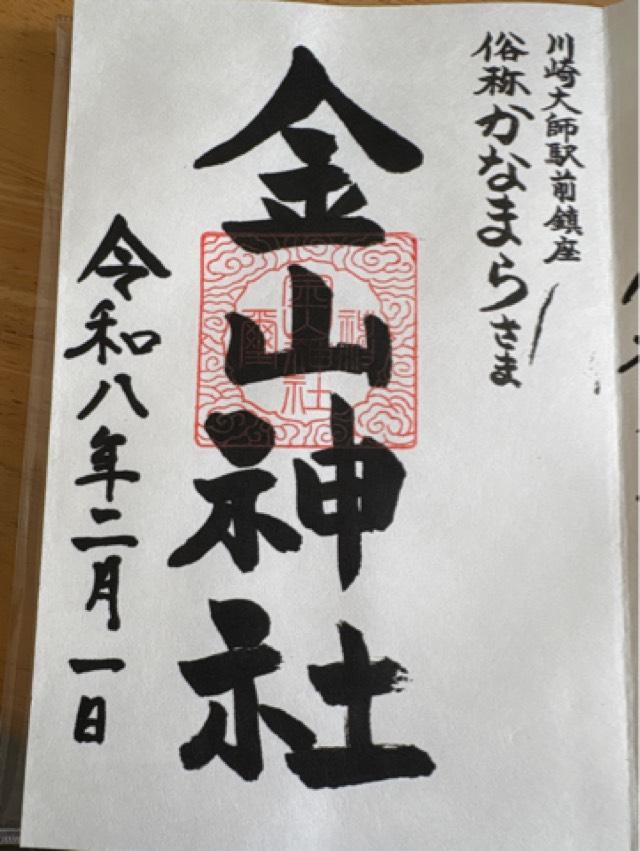 川崎大師駅前鎮座
俗称かなまらさま
金山神社
令和八年二月一日